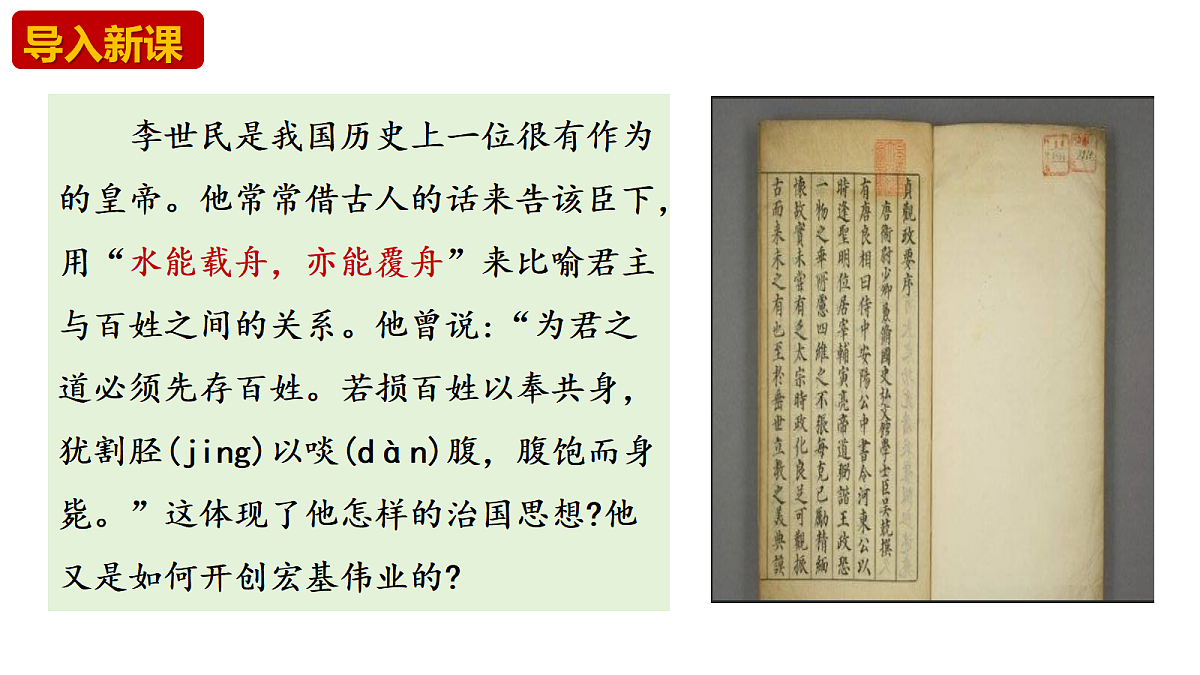 导入新课
李世民是我国历史上一位很有作为
的皇帝。他常常借古人的话来告该臣下，
用“水能载舟，亦能覆舟”来比喻君主
与百姓之间的关系。他曾说:“为君之
道必须先存百姓。若损百姓以奉共身，
犹割胫(jing)以啖(dàn)腹，腹饱而身
毙。”这体现了他怎样的治国思想?他
又是如何开创宏基伟业的?
貞觀政要序
唐衛尉少卿兼脩國史弘文館學士臣吳兢撰
有唐良相曰侍中安陽公中書令河東公以
時逢聖明位居宰輔寅亮帝道弼諧王政恐
一物之乖所慮四維之不張每克己勵精緬
懷故實未嘗有乏太宗時政化良足可觀振
古而來未之有也至於垂世立教之美典謨